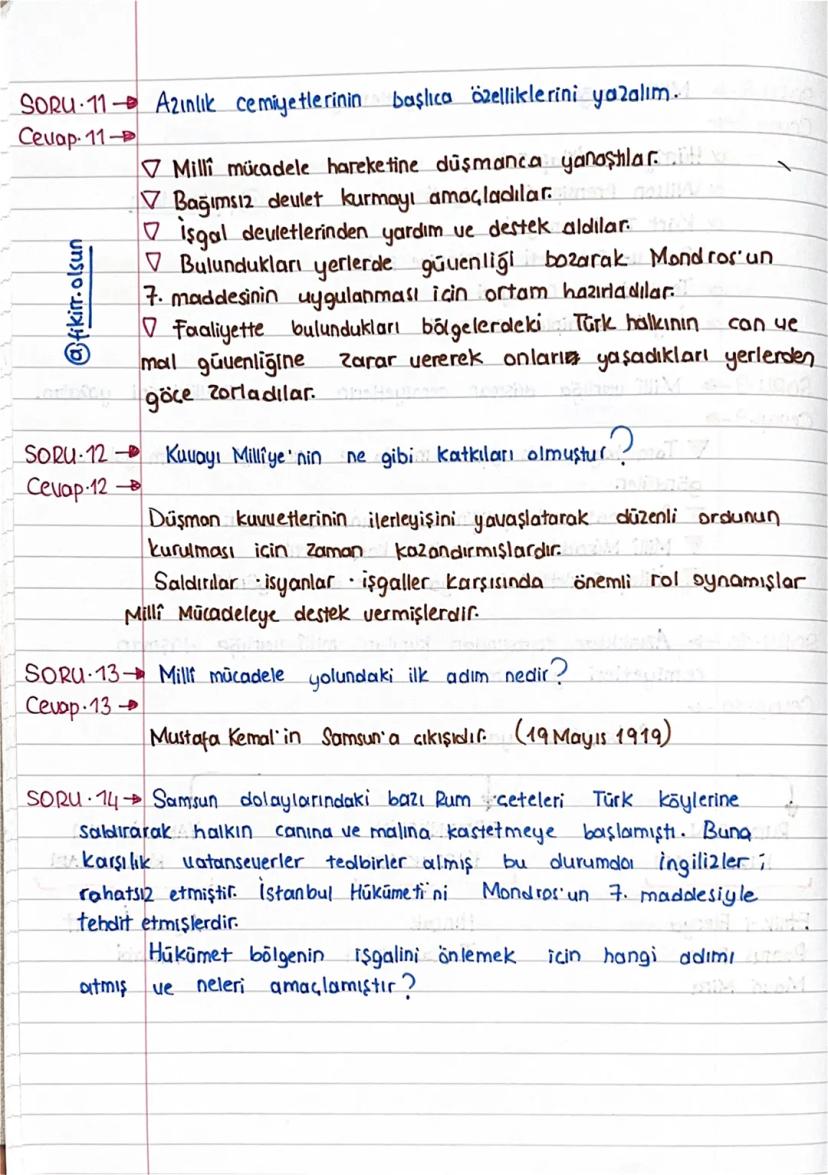 SORU·11→ Azınlık cemiyetlerinin başlıca özelliklerini yazalım.
Cevap·11→
▽ Millî mücadele hareketine düşmanca yanaştılar.
▽ Bağımsız devlet kurmayı amaçladılar.
▽ İşgal devletlerinden yardım ve destek aldılar.
▽ Bulundukları yerlerde güvenliği bozarak Mondros'un
7. maddesinin uygulanması için ortam hazırladılar.
▽ Faaliyette bulundukları bölgelerdeki Türk halkının can ve
mal güvenliğine zarar vererek onları yaşadıkları yerlerden
göçe zorladılar.
@fikirr.olsun
SORU·12→ Kuvayı Millîye'nin ne gibi katkıları olmuştur?
Cevap·12→
Düşman kuvvetlerinin ilerleyişini yavaşlatarak düzenli ordunun
kurulması için zaman kazandırmışlardır.
Saldırılar · isyanlar · işgaller karşısında önemli rol oynamışlar
Millî Mücadeleye destek vermişlerdir.
SORU·13→ Millî mücadele yolundaki ilk adım nedir?
Cevap·13→
Mustafa Kemal'in Samsun'a çıkışıdır. (19 Mayıs 1919)
SORU·14→ Samsun dolaylarındaki bazı Rum çeteleri Türk köylerine
saldırarak halkın canına ve malına kastetmeye başlamıştı. Buna
karşılık vatanseverler tedbirler almış bu durumda İngilizler i
rahatsız etmiştir. İstanbul Hükümeti'ni Mondros'un 7. maddesiyle
tehdit etmişlerdir.
Hükümet bölgenin işgalini önlemek için hangi adımı
atmış ve neleri amaçlamıştır?